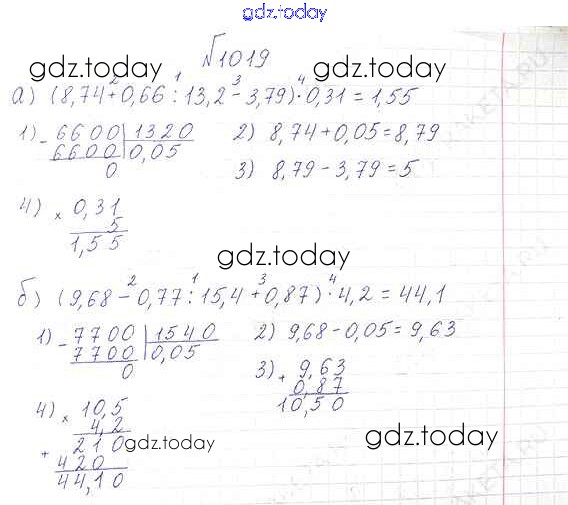 gdz.today
№1019
gdz.today gdz.today
2 1 3 4
а) (8,74+0,66:13,2-3,79)·0,31=1,55
1) - 6600 | 1320 2) 8,74+0,05=8,79
6600 0,05 3) 8,79-3,79=5
0
4) × 0,31
5
1,55
gdz.today
2 1 3 4
б) (9,68-0,77:15,4+0,87)·4,2=44,1
1) - 7700 | 1540 2) 9,68-0,05=9,63
7700 0,05 3) + 9,63
0 0,87
10,50
4) × 10,5
4,2
+ 210 gdz.today gdz.today
420
44,10